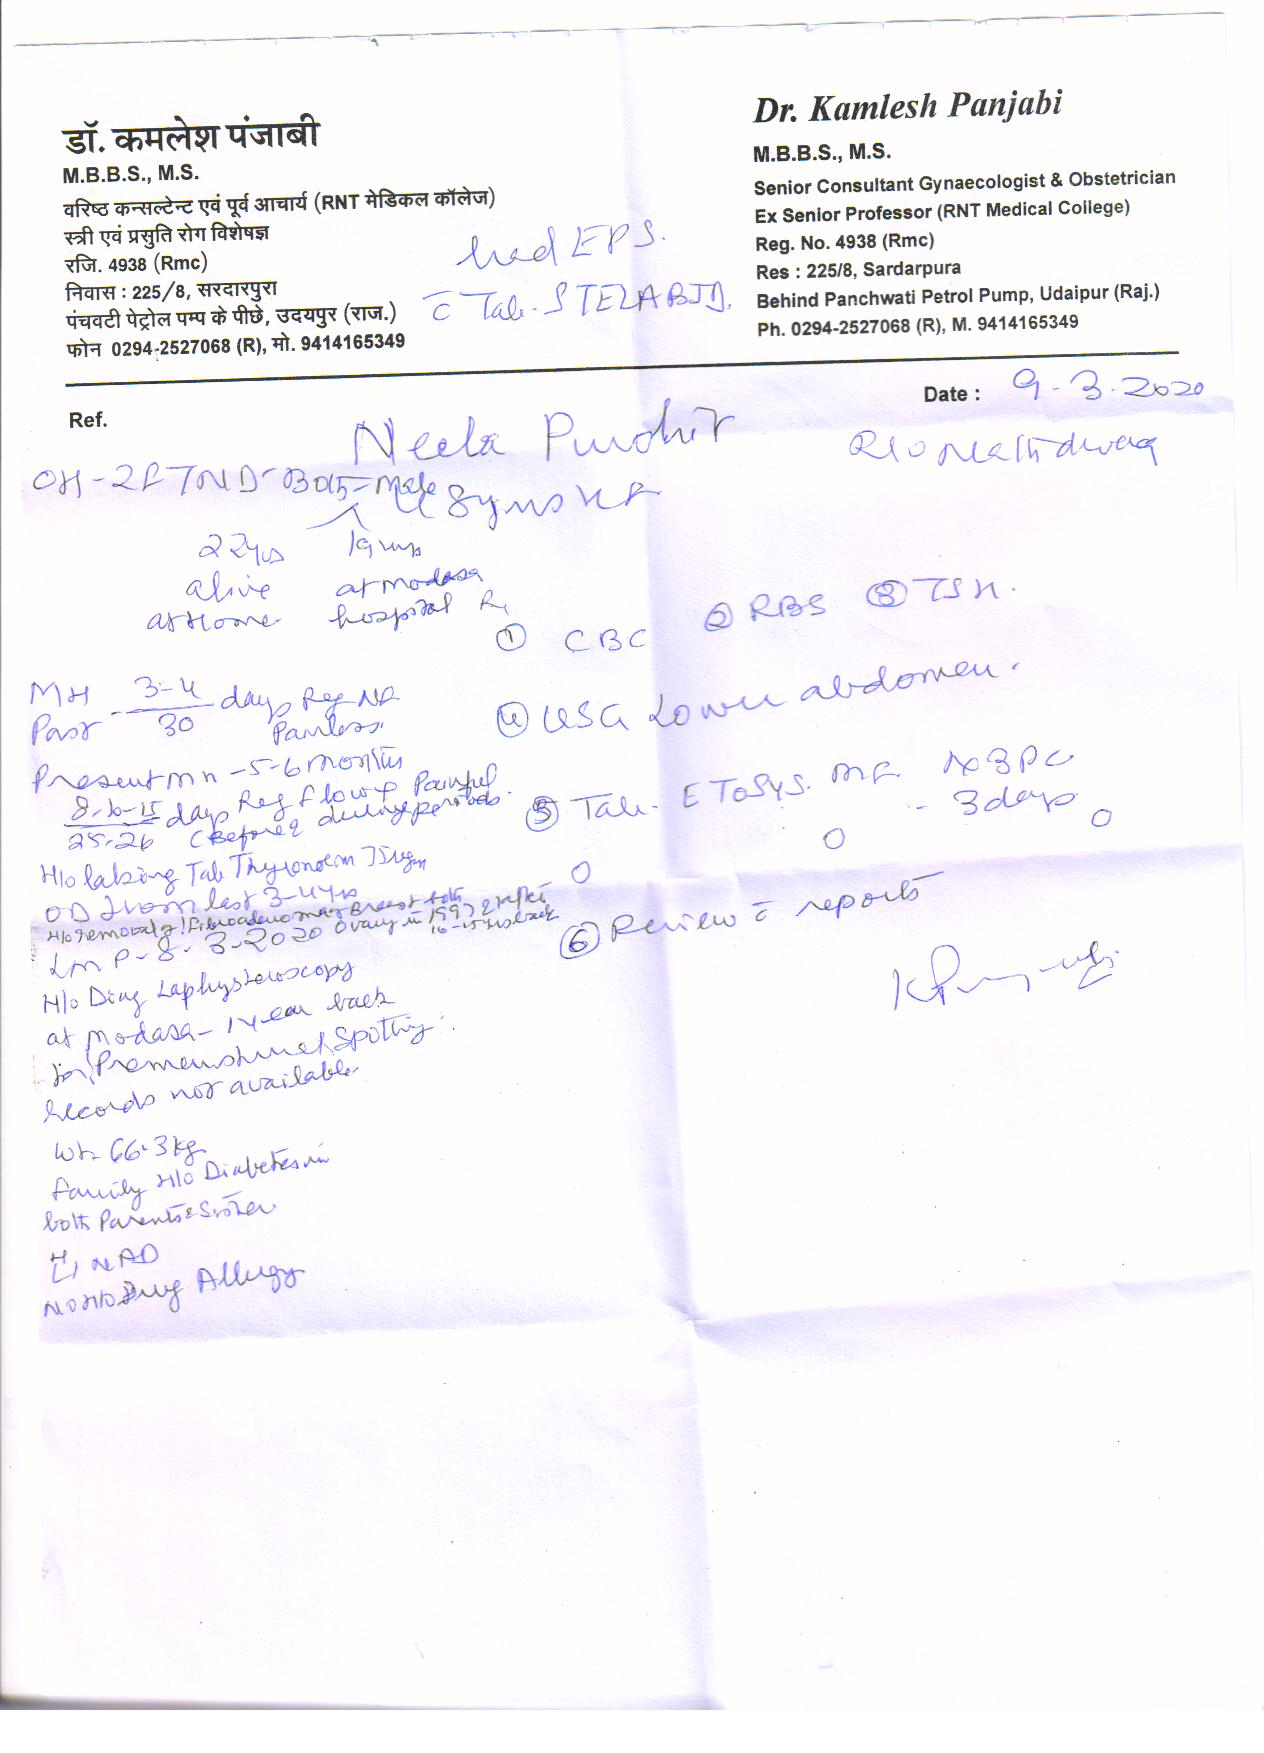 डॉ. कमलेश पंजाबी
M.B.B.S., M.S.
वरिष्ठ कन्सल्टेन्ट एवं पूर्व आचार्य (RNT मेडिकल कॉलेज)
स्त्री एवं प्रसुति रोग विशेषज्ञ
रजि. 4938 (Rmc)
निवास : 225/8, सरदारपुरा
पंचवटी पेट्रोल पम्प के पीछे, उदयपुर (राज.)
फोन 0294-2527068 (R), मो. 9414165349
Dr. Kamlesh Panjabi
M.B.B.S., M.S.
Senior Consultant Gynaecologist & Obstetrician
Ex Senior Professor (RNT Medical College)
Reg. No. 4938 (Rmc)
Res : 225/8, Sardarpura
Behind Panchwati Petrol Pump, Udaipur (Raj.)
Ph. 0294-2527068 (R), M. 9414165349
had EPS.
c̄ Tab.
Date : 9-3-2020
Ref.
Neela Purohit
R/O Nathdwara
OH - 2FTND - Both - Male
22yrs
alive at Modasa
at Home hospital
① CBC ② RBS ③ TSH.
④ USG Lower abdomen.
⑤ Tab. ETOSYS. MF
- 3 days
⑥ Review c̄ reports
MH 3-4 days Reg NF
Past 30 Painless
Present MH - 5-6 months
8-10-15 days Reg flow + Painful
25-26 (Before & during periods
H/o taking Tab Thyronorm
OD from last 3-4 yrs
H/o removal of Fibroadenoma Breast both
Ovary in 1997
LMP - 8-3-2020
H/o Diag Laphysteroscopy
at Modasa - 1 year back
for Premenstrual Spotting.
records not available
Wt - 66.3 kg
Family H/o Diabetes in
both Parents & Sister.
H
L NAD
No H/o Drug Allergy